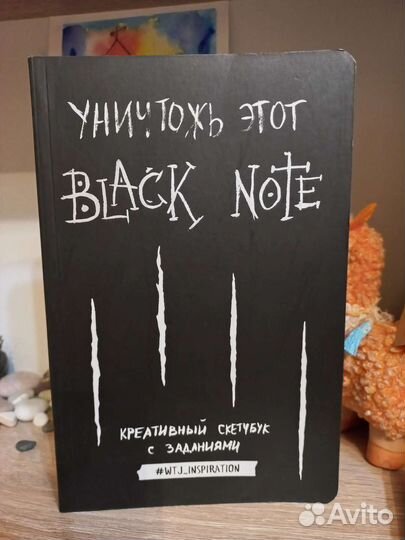 УНИЧТОЖЬ ЭТОТ
BLACK NOTE
КРЕАТИВНЫЙ СКЕТЧБУК
С ЗАДАНИЯМИ
#WTJ_INSPIRATION
Avito